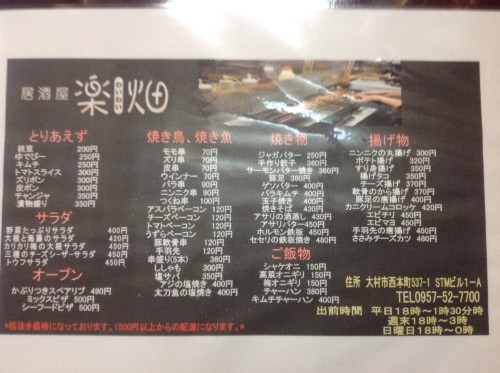 居酒屋 楽畑
とりあえず
枝豆 200円
ゆでぴー 250円
キムチ 250円
トマトスライス 300円
ズリポン 300円
皮ポン 300円
チャンジャ 350円
漬物盛り 350円
サラダ
野菜たっぷりサラダ 400円
大根と海藻のサラダ 420円
カリカリ揚の大根サラダ 420円
三種のチーズシーザーサラダ 450円
トウフサラダ 450円
オーブン
かぶりつきスペアリブ 490円
ミックスピザ 500円
シーフードピザ 500円
焼き鳥、焼き魚
モモ串 70円
ズリ串 70円
皮串 70円
ウインナー 70円
バラ串 90円
ニンニク串 90円
つくね串 100円
アスパラベーコン 120円
チーズベーコン 120円
トマトベーコン 120円
うずらベーコン 120円
豚軟骨串 120円
手羽先 120円
串盛り(5本) 360円
ししゃも 300円
塩サバ 350円
アジの塩焼き 400円
太刀魚の塩焼き 400円
焼き物
ジャガバター 250円
手作り餃子 360円
サーモンバター焼き 360円
豚足 380円
ゲソバター 350円
バラキムチ 400円
玉子焼き 400円
焼きそば 430円
アサリの酒蒸し 430円
アサリバター 450円
ホルモン鉄板 450円
セセリの鉄板焼き 500円
ご飯物
シャケオニ 150円
高菜オニギリ 150円
梅オニギリ 150円
チャーハン 380円
キムチチャーハン 400円
揚げ物
ニンニクの丸揚げ 300円
ポテト揚げ 320円
すり身揚げ 350円
揚げタコ 350円
チーズ揚げ 370円
軟骨のから揚げ 370円
豚足の唐揚げ 400円
カニクリームコロッケ 420円
エビチリ 450円
エビマヨ 450円
手羽先の唐揚げ 450円
ささみチーズカツ 480円
住所 大村市西本町537-1 STMビル1-A
TEL0957-52-7700
出前時間 平日18時～1時30分時
週末18時～3時
日曜日18時～0時
*税抜き価格になっております。1500円以上からの配達になります。*